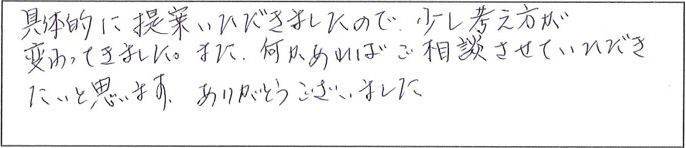 具体的に提案いただきましたので、少し考え方が
変わってきました。また、何かあればご相談させていただき
たいと思います、ありがとうございました